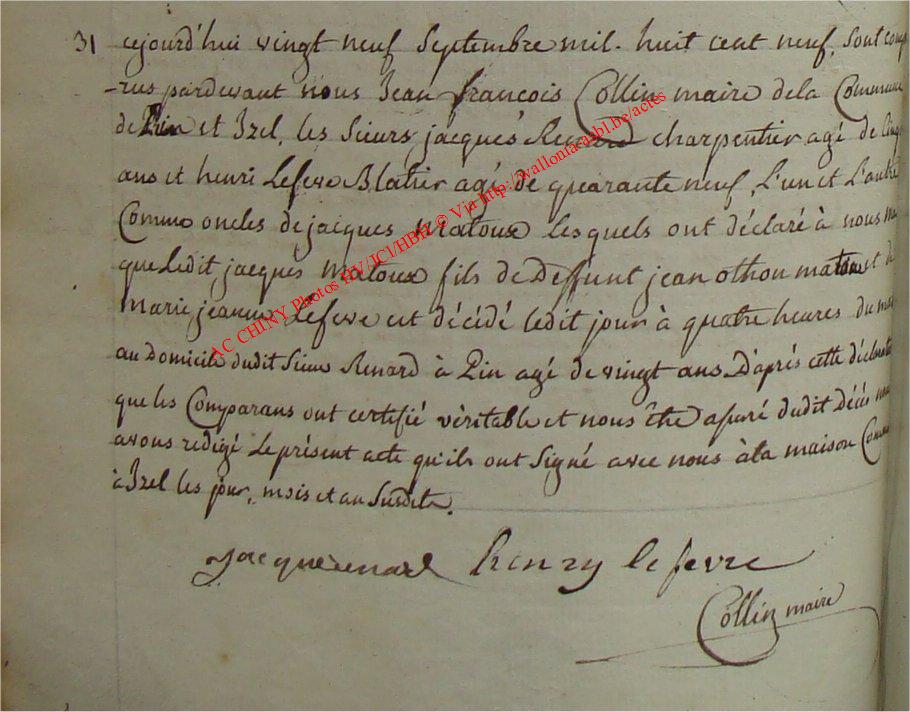 31 cejourd'hui vingt neuf Septembre mil. huit cent neuf, sont comp
-rus pardevant nous Jean francois Collin maire dela Commune
de Pin et Izel, les Sieurs jacques Renard charpentier agé de cinq
ans et henri Lefevre Blatier agé de quarante neuf, L'un et L'autre
Comme oncles de jacques Matoux lesquels ont déclaré à nous
que Ledit jacques Matoux fils de Deffunt jean othon matoux et de
Marie jeanne Lefevre est décédé ledit jour à quatre heures du
au Domicile dudit Sieur Renard à Pin agé de vingt ans D'après cette déclarat
que les Comparans ont certifié véritable et nous être apuré dudit Décès nous
avons redigé Le présent acte qu'ils ont Signé avec nous à la maison Comm
à Izel les jour, mois et an Susdits.
jacque renard henry lefevre
Collin maire
AC CHINY Photos HV/JCl/HBH © Via http://walloniaasbl.be/actes